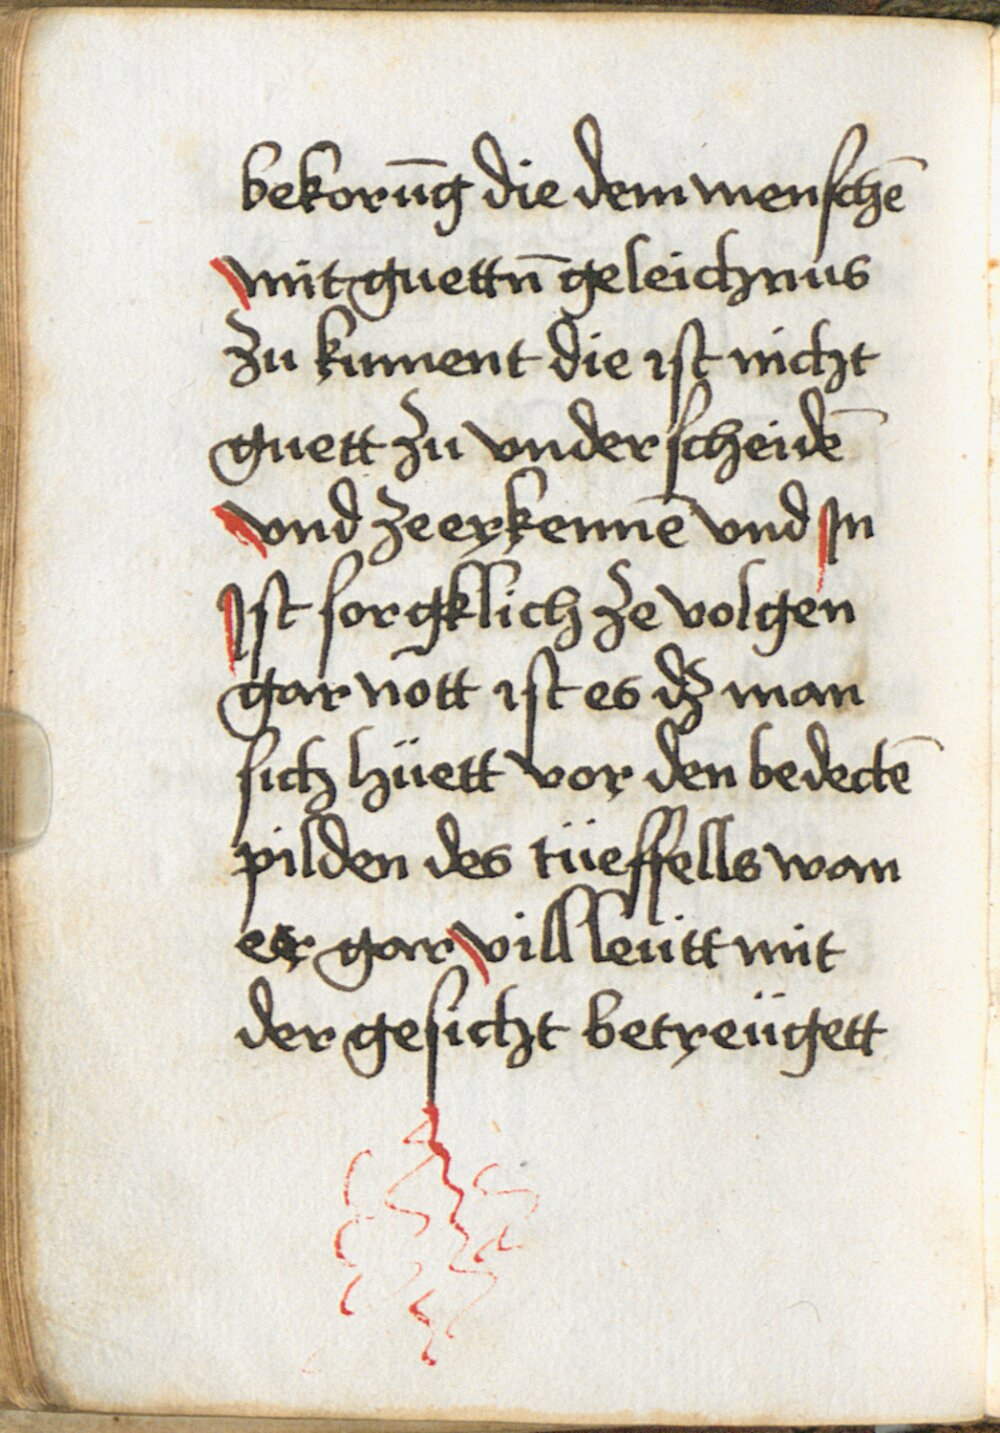 bekorūg die dem menschē
mit guettn̄ geleichnus
zu kument die ist nicht
guett zu vnderscheidē
vnd ze erkennē vnd In
Ist sorgklich ze volgen
gar nott ist es dz man
sich hüett vor den bedectē
pilden des tüeffells wan
er gar vill leütt mit
der gesicht betreügett